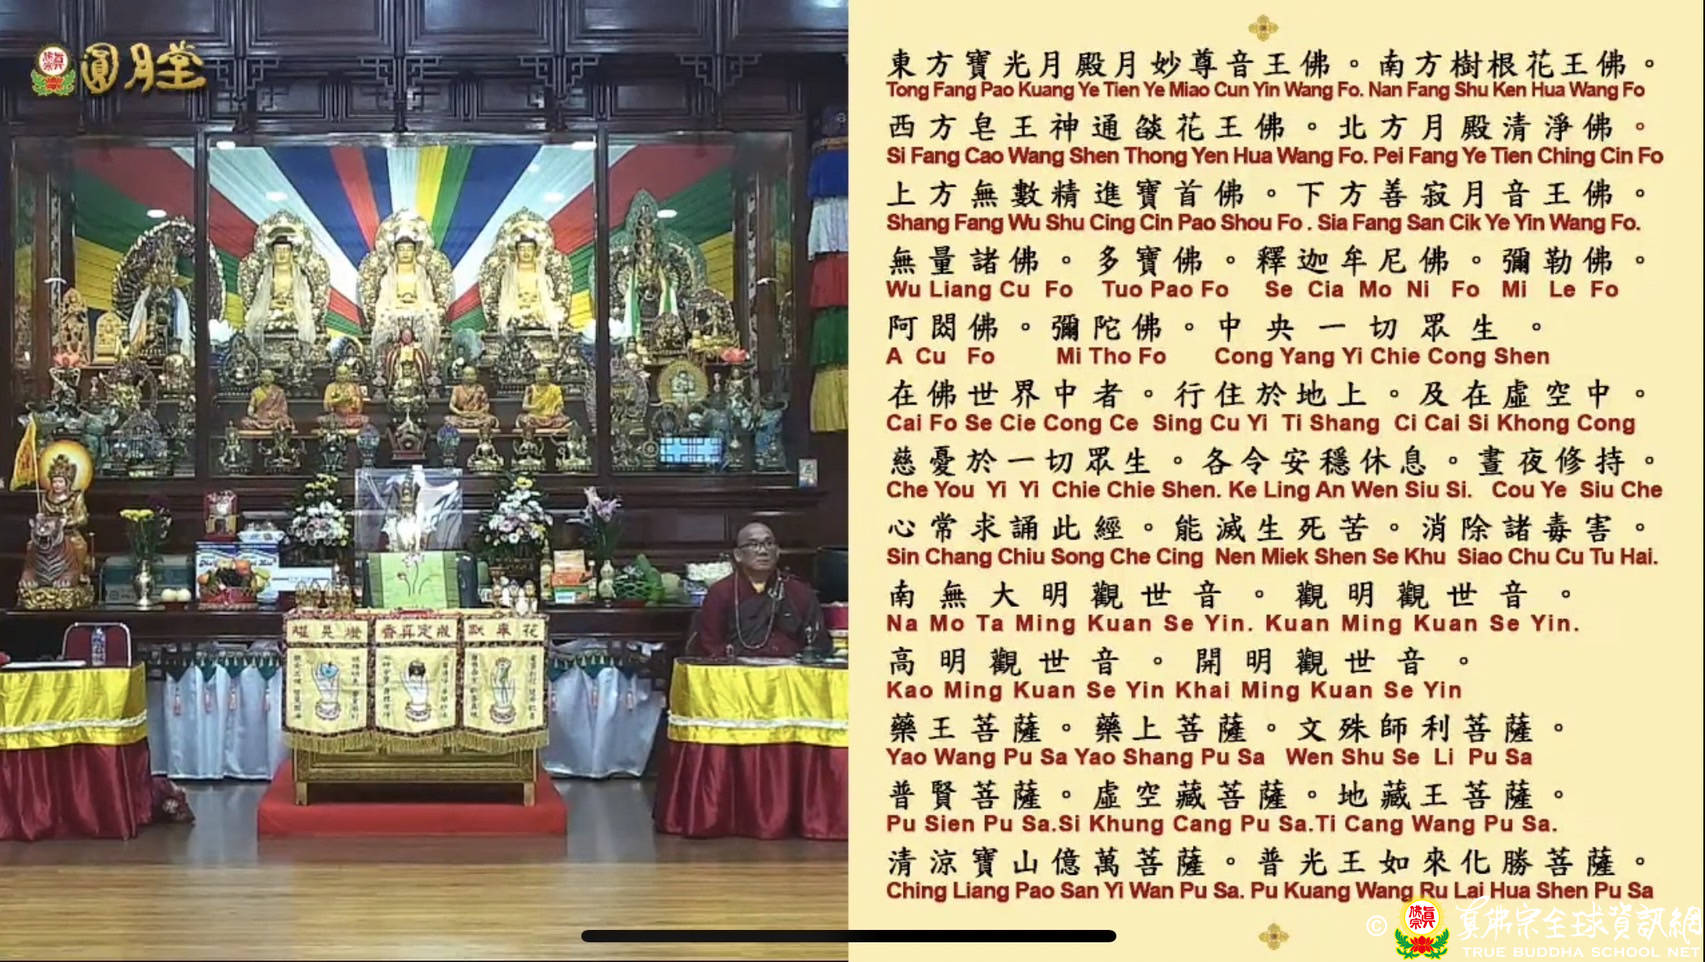 圓月堂
東方寶光月殿月妙尊音王佛。南方樹根花王佛。
Tong Fang Pao Kuang Ye Tien Ye Miao Cun Yin Wang Fo. Nan Fang Shu Ken Hua Wang Fo
西方皂王神通燄花王佛。北方月殿清淨佛。
Si Fang Cao Wang Shen Thong Yen Hua Wang Fo. Pei Fang Ye Tien Ching Cin Fo
上方無數精進寶首佛。下方善寂月音王佛。
Shang Fang Wu Shu Cing Cin Pao Shou Fo . Sia Fang San Cik Ye Yin Wang Fo.
無量諸佛。多寶佛。釋迦牟尼佛。彌勒佛。
Wu Liang Cu Fo Tuo Pao Fo Se Cia Mo Ni Fo Mi Le Fo
阿閦佛。彌陀佛。中央一切眾生。
A Cu Fo Mi Tho Fo Cong Yang Yi Chie Cong Shen
在佛世界中者。行住於地上。及在虛空中。
Cai Fo Se Cie Cong Ce Sing Cu Yi Ti Shang Ci Cai Si Khong Cong
慈憂於一切眾生。各令安穩休息。晝夜修持。
Che You Yi Yi Chie Chie Shen. Ke Ling An Wen Siu Si. Cou Ye Siu Che
心常求誦此經。能滅生死苦。消除諸毒害。
Sin Chang Chiu Song Che Cing Nen Miek Shen Se Khu Siao Chu Cu Tu Hai.
南無大明觀世音。觀明觀世音。
Na Mo Ta Ming Kuan Se Yin. Kuan Ming Kuan Se Yin.
高明觀世音。開明觀世音。
Kao Ming Kuan Se Yin Khai Ming Kuan Se Yin
藥王菩薩。藥上菩薩。文殊師利菩薩。
Yao Wang Pu Sa Yao Shang Pu Sa Wen Shu Se Li Pu Sa
普賢菩薩。虛空藏菩薩。地藏王菩薩。
Pu Sien Pu Sa.Si Khung Cang Pu Sa.Ti Cang Wang Pu Sa.
清涼寶山億萬菩薩。普光王如來化勝菩薩。
Ching Liang Pao San Yi Wan Pu Sa. Pu Kuang Wang Ru Lai Hua Shen Pu Sa
© 真佛宗全球資訊網
TRUE BUDDHA SCHOOL NET